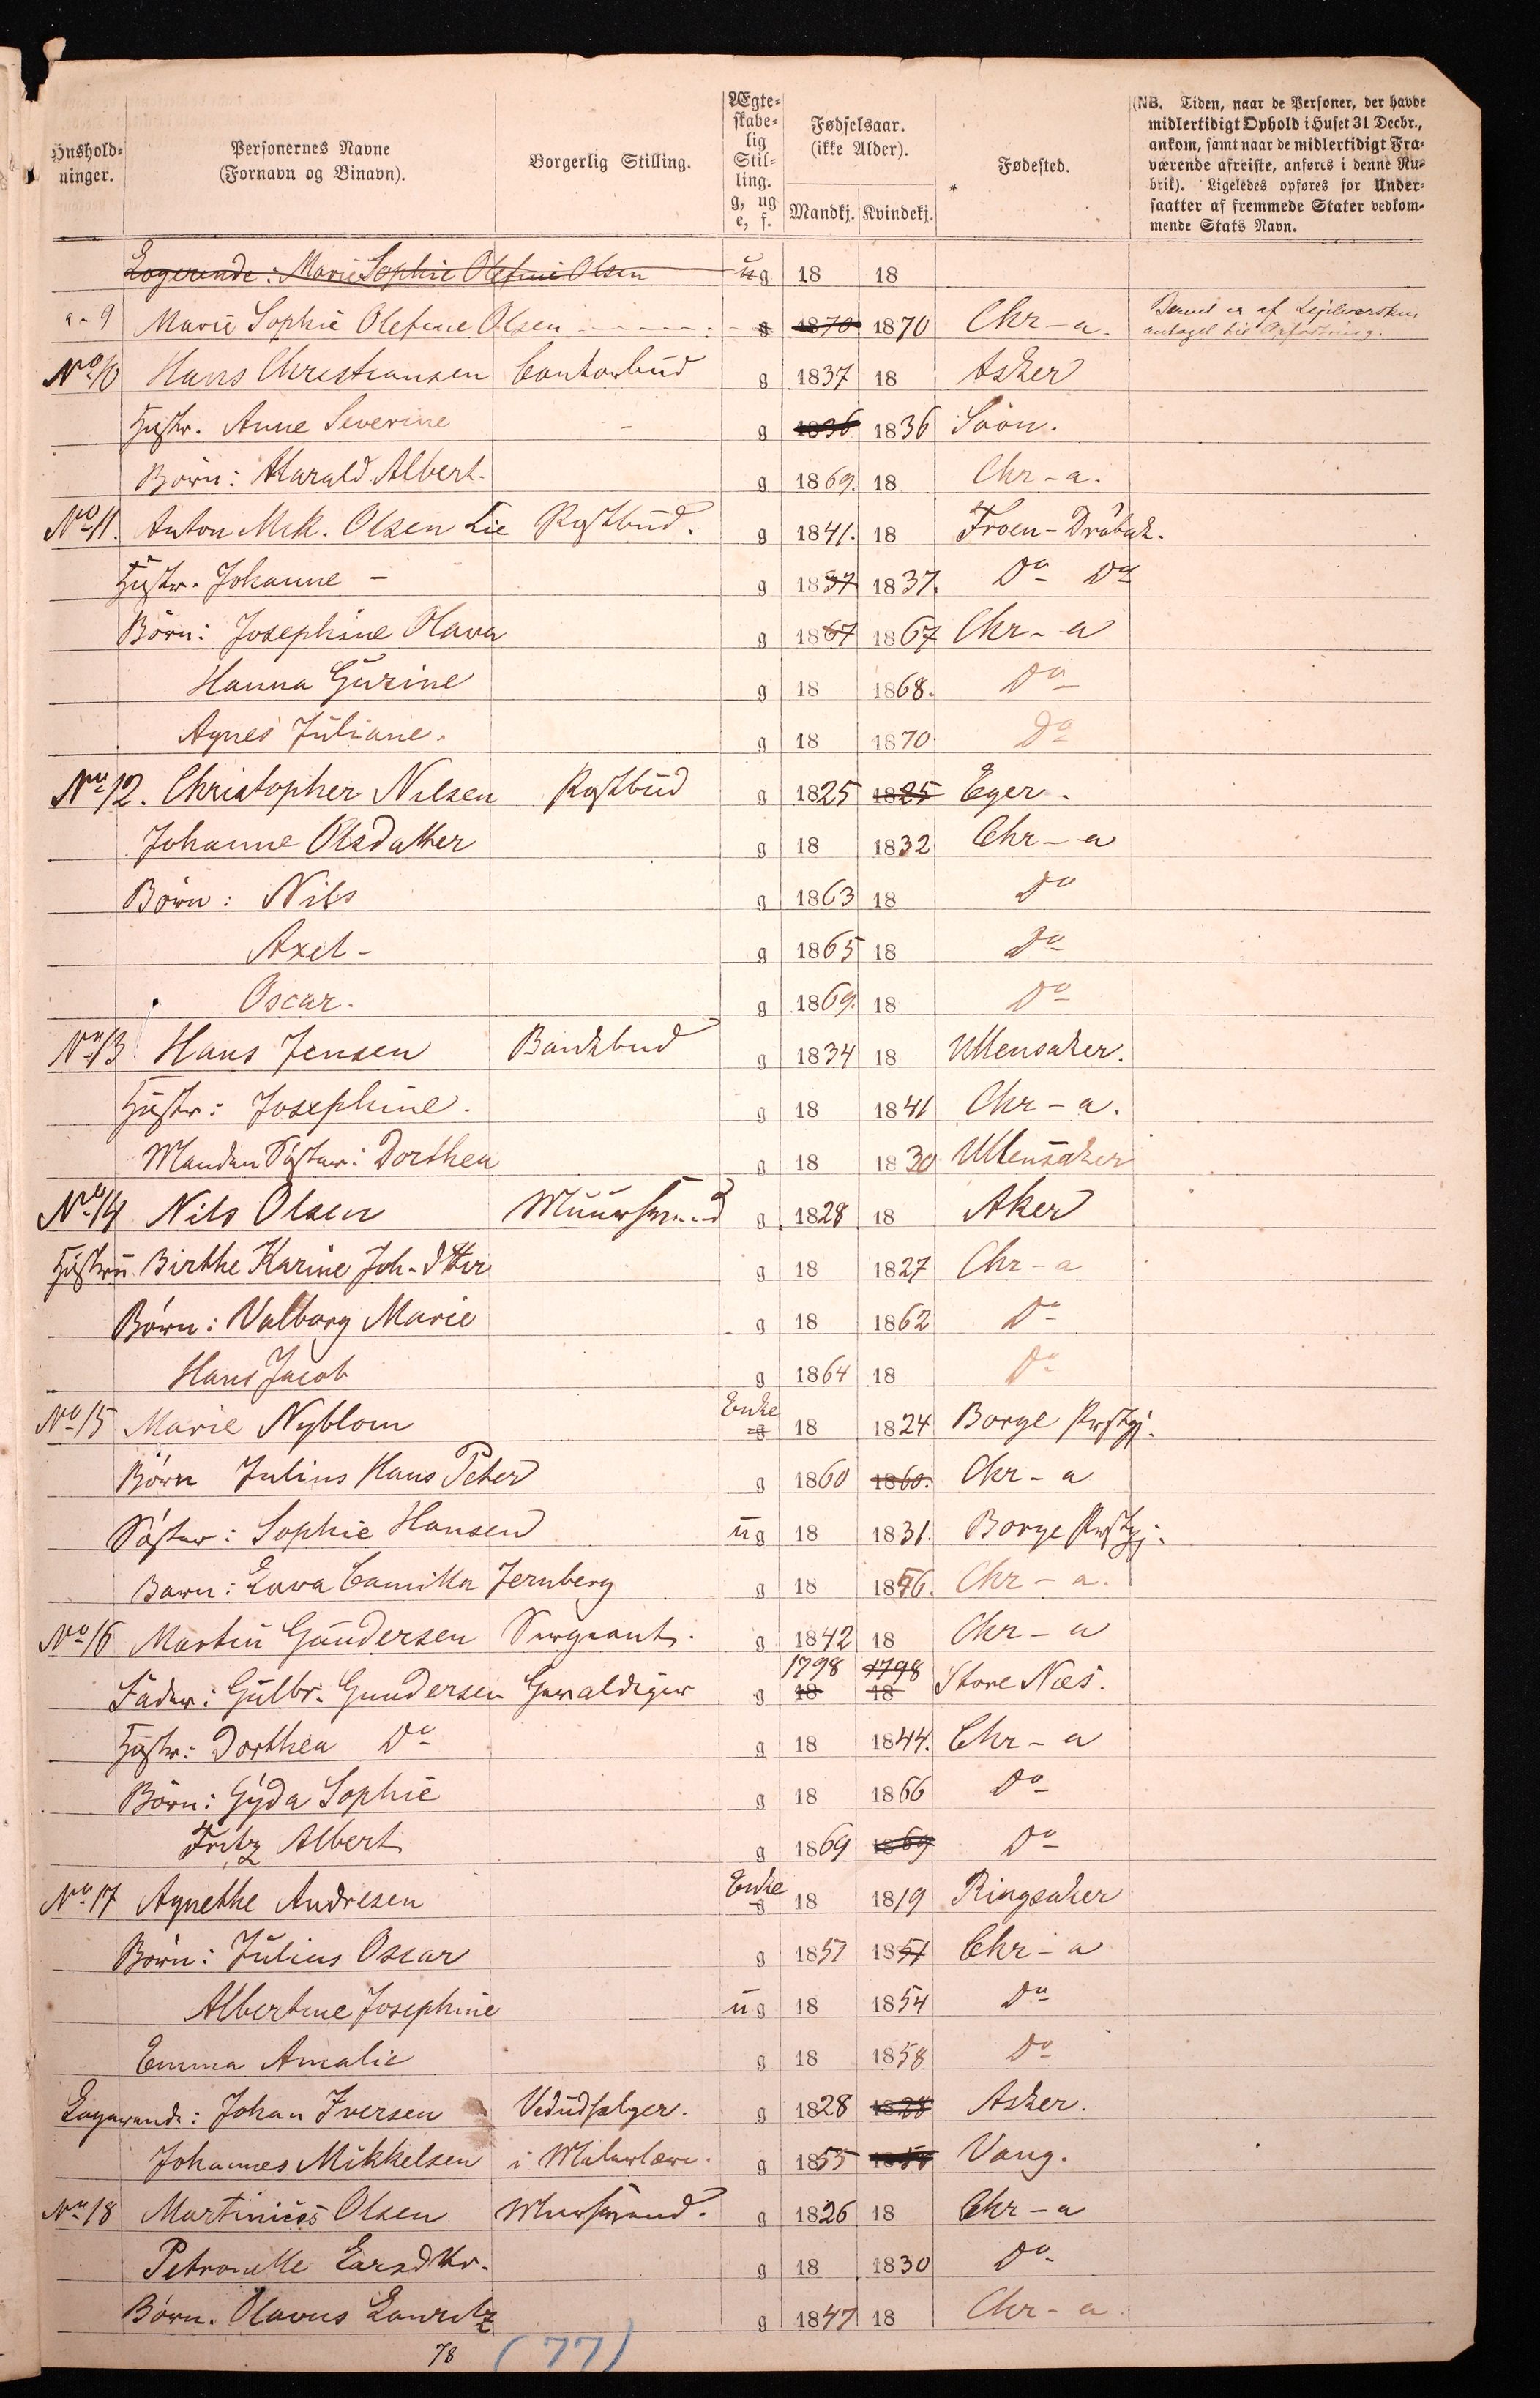 Hushold-
ninger.
Personernes Navne
(Fornavn og Binavn).
Borgerlig Stilling.
Ægte-
skabe-
lig
Stil-
ling.
g, ug
e, f.
Fødselsaar.
(ikke Alder).
Mandkj. Kvindekj.
Fødested.
(NB. Tiden, naar de Personer, der havde
midlertidigt Ophold i Huset 31 Decbr.,
ankom, samt naar de midlertidigt Fra-
værende afreiste, anføres i denne Ru-
brik). Ligeledes opføres for Under-
saatter af fremmede Stater vedkom-
mende Stats Navn.
Logerende: Marie Sophie Olefine Olsen ug 18 18
a - 9 Marie Sophie Olefine Olsen g 1870 1870 Chr-a. Barnet er af
antaget til Opfostring.
No 10 Hans Christiansen Contorbud g 1837 18 Asker
Hustr. Anne Severine - g 1836 1836 Soon.
Børn: Harald Albert. g 1869. 18 Chr-a.
No 11. Anton Mrk. Olsen Lie Postbud. g 1841. 18 Froen-Drøbak.
Hustr. Johanne - g 1837 1837. Do Do
Børn: Josephine Olava g 1867 1867 Chr-a
Hanna Gurine g 18 1868. Do
Agnes Juliane. g 18 1870. Do
No 12. Christopher Nilsen Postbud g 1825 1825 Eger.
Johanne Olsdatter g 18 1832 Chr-a
Børn: Nils g 1863 18 Do
Axel - g 1865 18 Do
Oscar. g 1869. 18 Do
No 13 Hans Jensen Bankbud g 1834 18 Ullensaker.
Hustr: Josephine. g 18 1841 Chr-a.
Manden Søster: Dorthea g 18 1830 Ullensaker
No 14 Nils Olsen Muursvend g 1828 18 Aker
Hustru Birthe Karine Joh-dtter g 18 1827 Chr-a
Børn: Valborg Marie g 18 1862 Do
Hans Jacob g 1864 18 Do
No 15 Marie Nyblom Enke g 18 1824 Borge Prstgj.
Børn Julius Hans Peter g 1860 1860. Chr-a
Søster: Sophie Hansen ug 18 1831. Borge Prstgj.
Barn: Lava Camilla Jernberg g 18 1856. Chr-a.
No 16 Martin Gundersen Sergeant. g 1842 18 Chr-a
Fader: Gulbr. Gundersen Gevaldiger g 1798 18 1798 18 Store Næs.
Hustr: Dorthea Do g 18 1844. Chr-a
Børn: Gyda Sophie g 18 1866 Do
Fritz Albert g 1869 1869 Do
No 17 Agnethe Andresen Enke g 18 1819 Ringsaker
Børn: Julius Oscar g 1851 1851 Chr-a
Albertine Josephine ug 18 1854 Do
Emma Amalie g 18 1858 Do
Logerende: Johan Iversen Vedudsælger. g 1828 1828 Asker.
Johannes Mikkelsen i Malerlære. g 1855 1855 Vang.
No 18 Martinius Olsen Muursvend. g 1826 18 Chr-a
Petronelle Larsdtr. g 18 1830 Do
Børn. Olavus Lauritz g 1847 18 Chr-a.
78 (77)